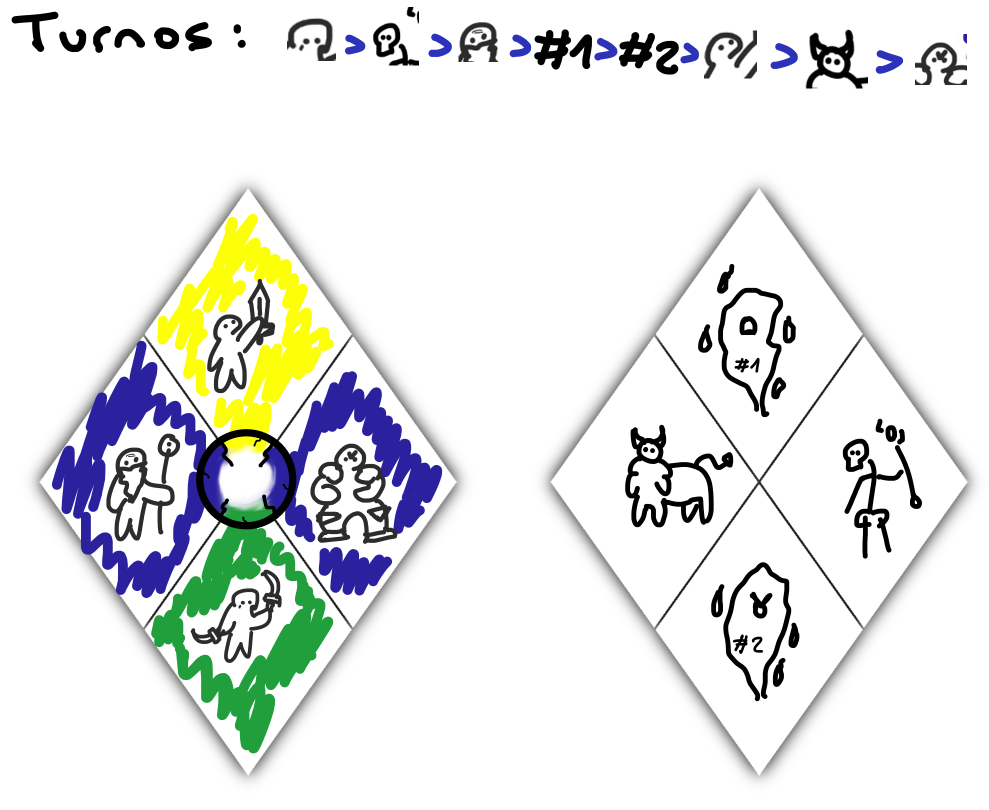 Turnos: > > > #1 > #2 > > >
#1
#2